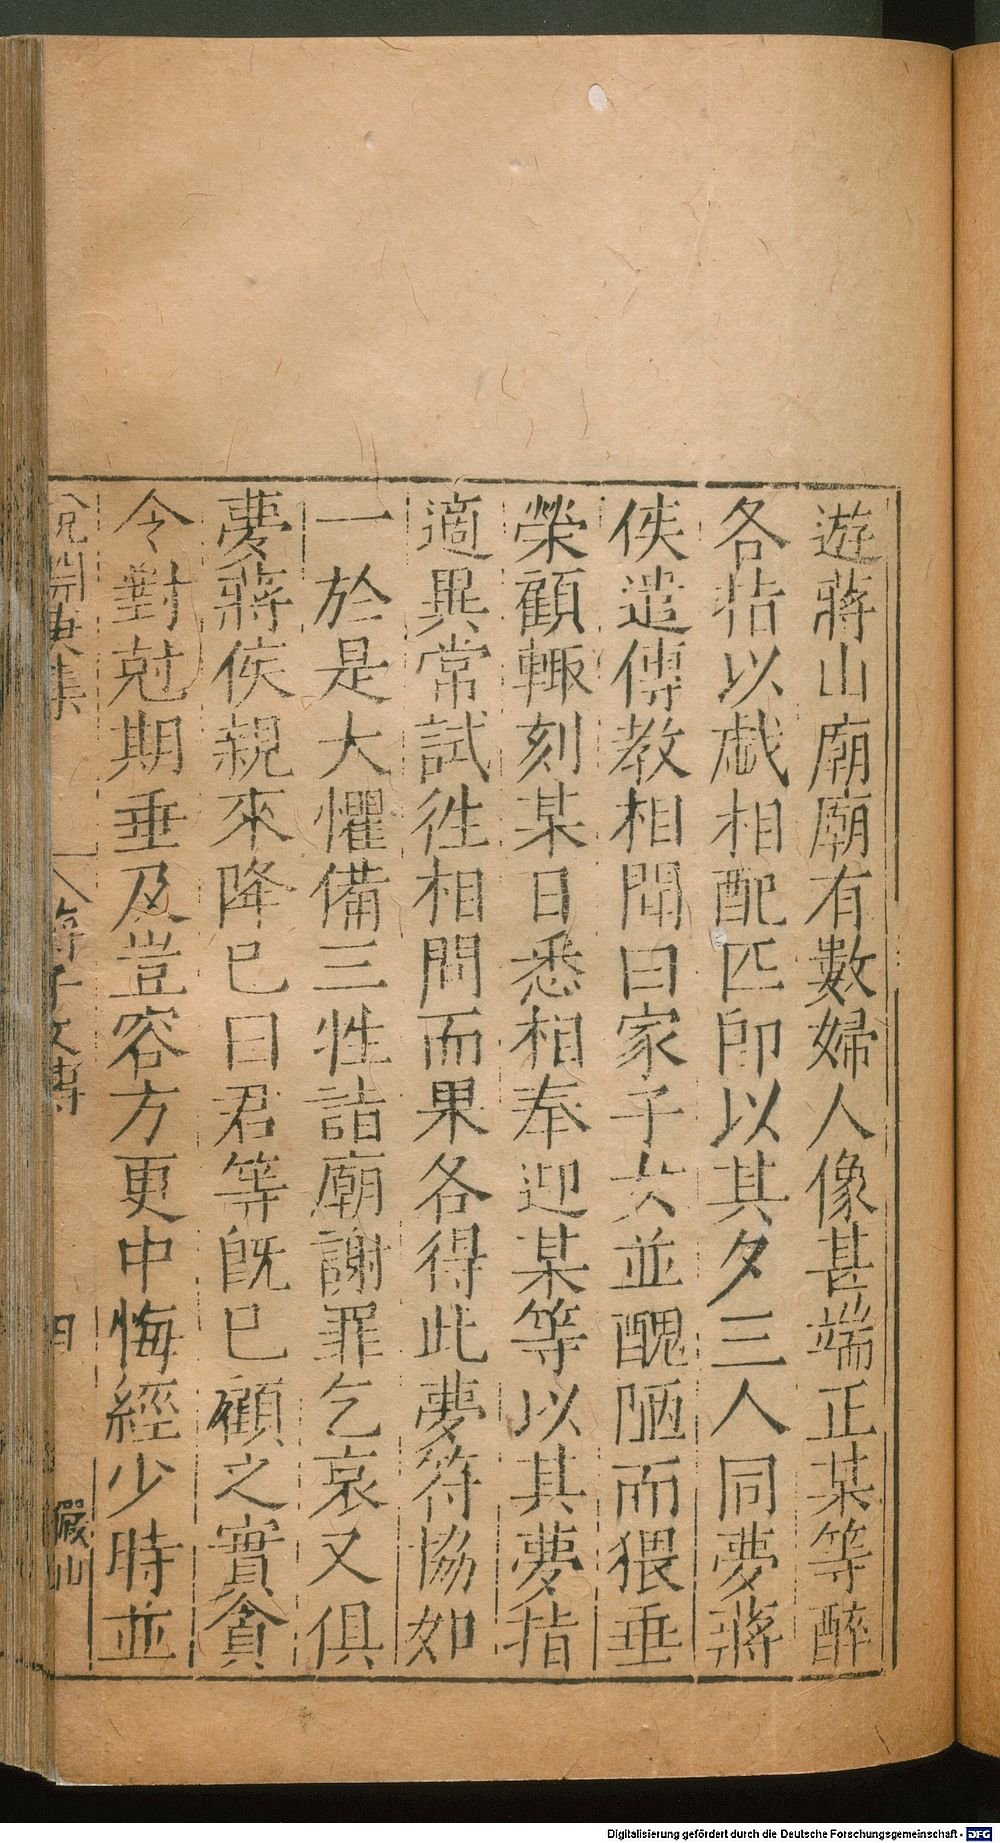 遊蔣山廟廟有數婦人像甚端正某等醉
各指以戯相配匹卽以其夕三人同夢蔣
侯遣傳教相聞曰家子女並醜陋而猥垂
榮顧輙刻某日悉相奉迎某等以其夢指
適異常試徃相問而果各得此夢符協如
一於是大懼備三牲詣廟謝罪乞哀又俱
夢蔣侯親來降已曰君等旣已顧之實貪
令對尅期垂及豈容方更中悔經少時並
說淵  蔣子文傳 四 儼山
Digitalisierung gefördert durch die Deutsche Forschungsgemeinschaft - DFG